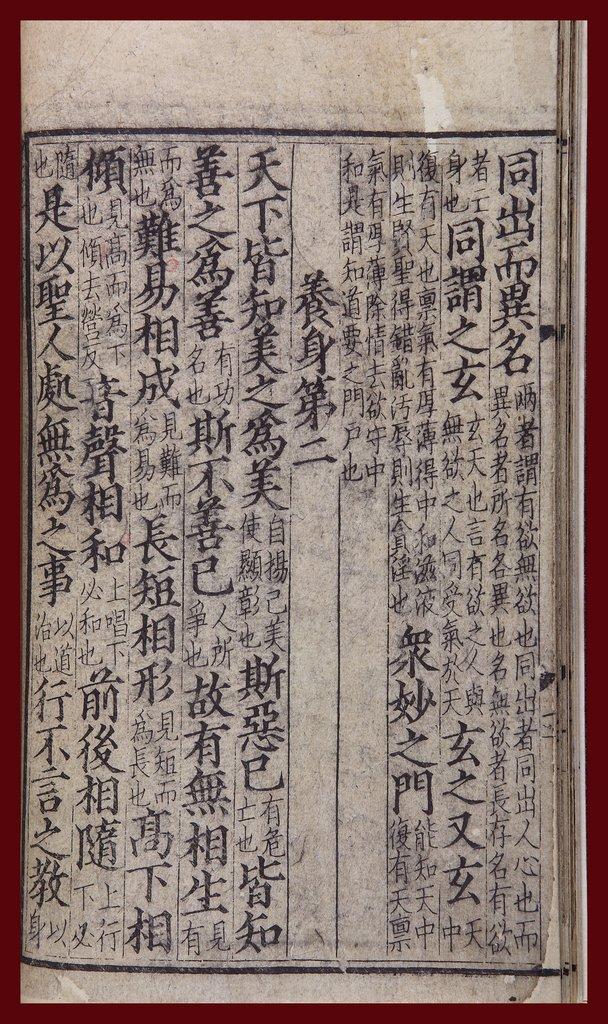 同出而異名兩者謂有欲無欲也同出者同出人心也而異名者所名各異也名無欲者長存名有欲
者亡身也同謂之玄玄天也言有欲之人與無欲之人同受氣於天玄之又玄天中
復有天也稟氣有厚薄得中和滋液則生賢聖得錯亂污辱則生貪淫也衆妙之門能知天中復有天稟
氣有厚薄除情去欲守中和是謂知道要之門戶也
養身第二
天下皆知美之爲美自揚己美使顯彰也斯惡已有危亡也皆知
善之爲善有功名也斯不善已人所爭也故有無相生見有
而爲無也難易相成見難而爲易也長短相形見短而爲長也高下相
傾見高而爲下也傾去營反音聲相和上唱下必和也前後相隨上行下必
隨也是以聖人處無爲之事以道治也行不言之教以身